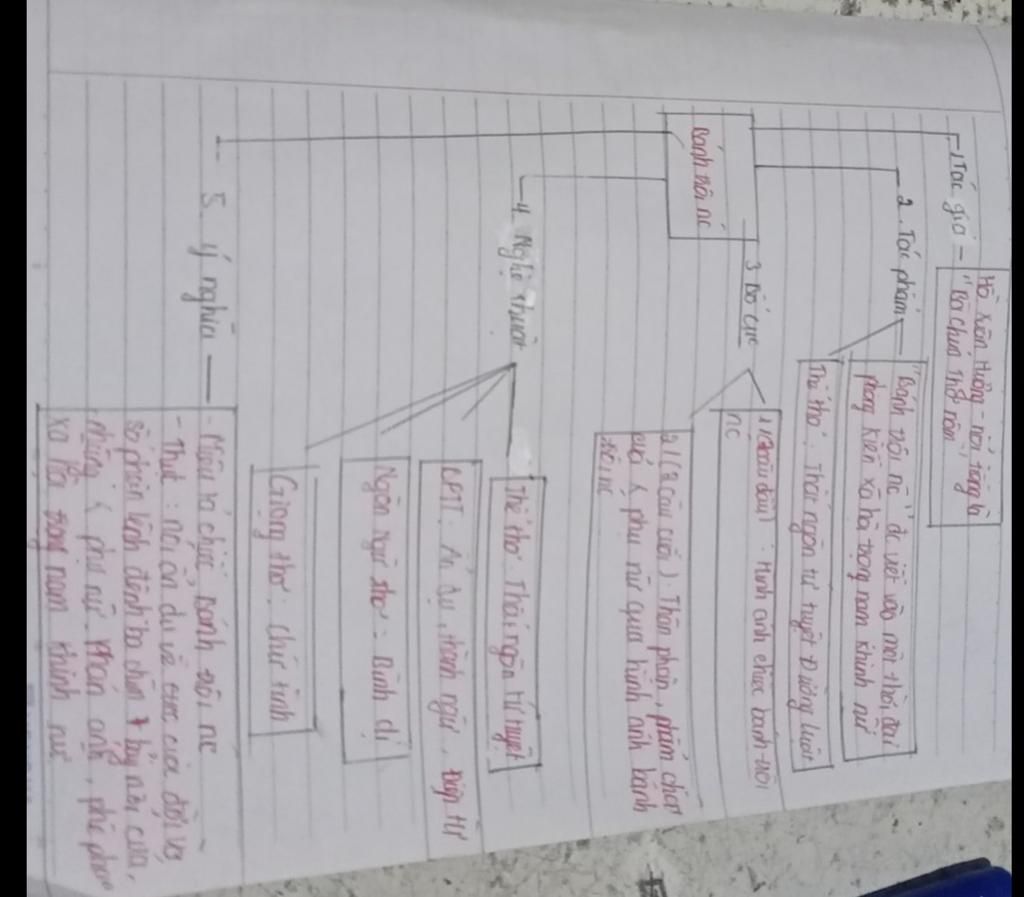 Bánh trôi nc
1. Tác giả
Hồ Xuân Hương - nổi tiếng là
"Bà chúa thơ nôm"
2. Tác phẩm
"Bánh trôi nc" đc viết vào một thời đại
phong kiến xã hội trọng nam khinh nữ
Thể thơ: Thất ngôn tứ tuyệt Đường luật
3 Bố cục
1 (2 câu đầu): Hình ảnh chiếc bánh trôi
nc
2 (2 câu cuối): Thân phận, phẩm chất
phụ nữ qua hình ảnh bánh
trôi nc
4. Nghệ thuật
Thể thơ: Thất ngôn tứ tuyệt
BPTT: Ẩn dụ, thành ngữ, điệp từ
Ngôn ngữ thơ: Bình dị
Giọng thơ: chữ tình
5. ý nghĩa
- Miêu tả chiếc bánh trôi nc
- Thơ: nói ẩn dụ về cuộc của đời vs
số phận lênh đênh ba chìm 7 bảy nổi của
những phụ nữ. Phản ánh, phê phán
xã hội trọng nam khinh nữ